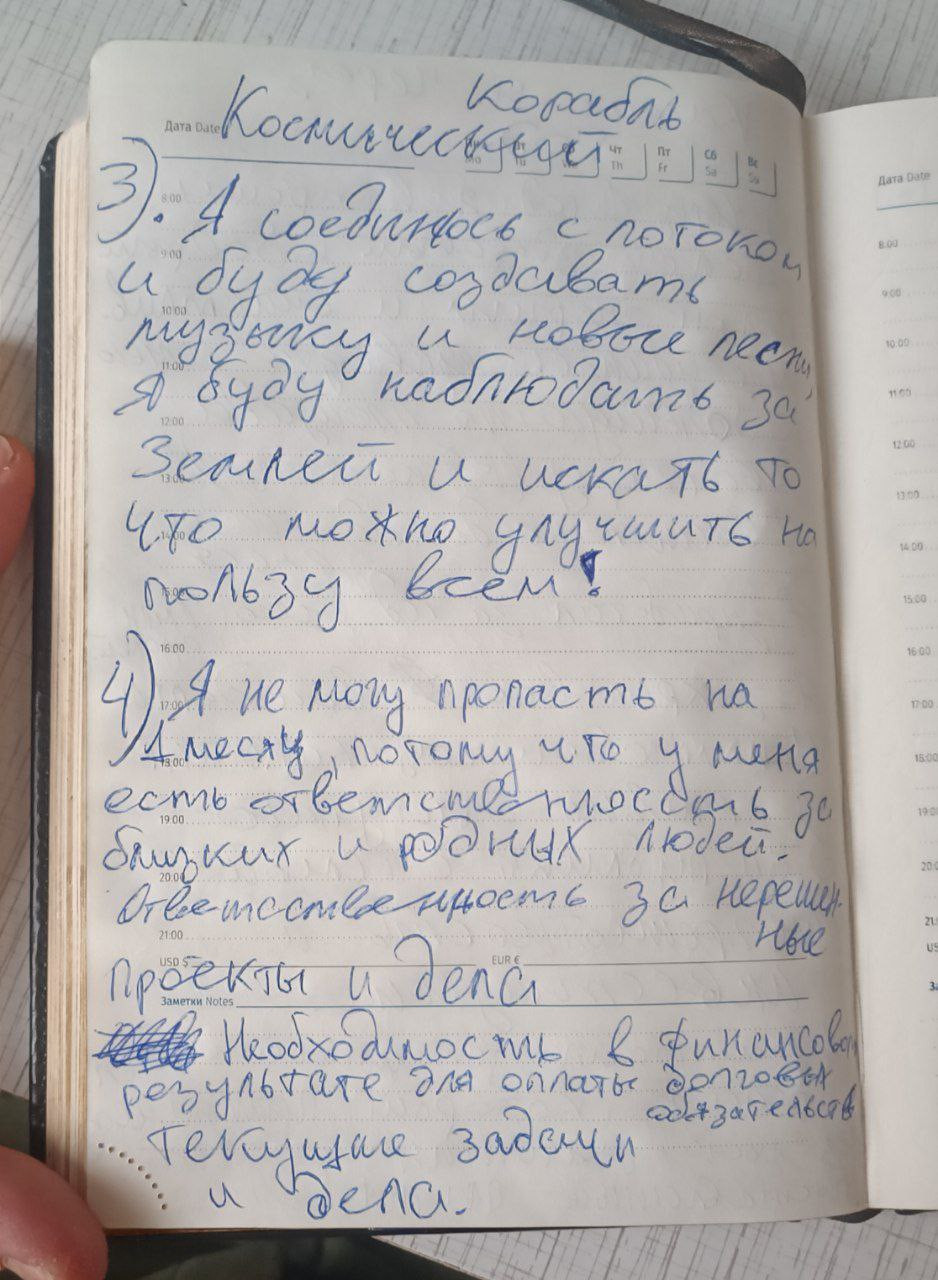 Корабль
Дата Date Космический
Чт Пт Сб Вс
Mo Th Fr Sa Su
3). Я соединюсь с потоком
8:00
9:00
и буду создавать
10:00
музыку и новые песни
11:00
Я буду наблюдать за
12:00
Землей и искать то
13:00
что можно улучшить на
14:00
пользу всем!
15:00
16:00
4) Я не могу пропасть на
17:00
1 месяц, потому что у меня
18:00
есть ответственность за
19:00
близких и родных людей.
20:00
Ответсственность за нерешен-
21:00
ные
USD $ EUR €
проекты и дела
Заметки Notes
Необходимость в финансовом
результате для оплаты долговых
обязательств
Текущие задачи
и дела.
Дата Date
8:00
9:00
10:00
11:00
12:00
13:00
14:00
15:00
16:00
17:00
18:00
19:0
20:0
21:
US
За